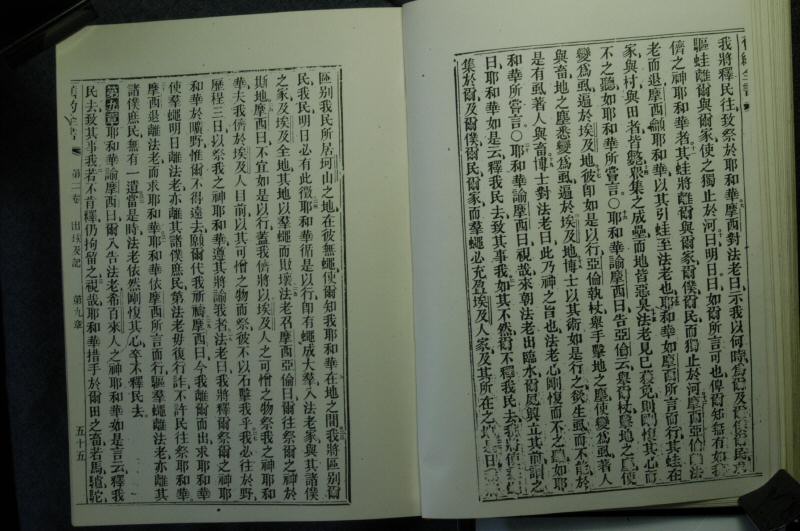 我將釋民往致祭於耶和華摩西對法老曰示我以何時爲爾及爾僕爾民
驅蛙離爾與爾家使之獨止於河曰明日曰如爾所言可也俾爾知無有如我
儕之神耶和華者其蛙將離爾與爾家爾僕爾民而獨止於河摩西亞倫
老而退摩西籲耶和華以其引蛙至法老也耶和華如摩西所言而行其蛙在
家與村與田者皆斃衆集之成壘而地皆惡臭法老見已獲免則剛愎其心而
不之聽如耶和華所嘗言○耶和華諭摩西曰告亞倫云舉爾杖擊地之塵使
變爲虱遍於埃及地彼卽如是以行亞倫執杖舉手擊地之塵使變爲虱著人
與畜地之塵悉變爲虱遍於埃及地博士以其術如是行之欲生虱而不能於
是有虱著人與畜博士對法老曰此乃神之旨也法老心剛愎而不之聽如耶
和華所嘗言○耶和華諭摩西曰視哉來朝法老出臨水爾夙興立其前謂之
曰耶和華如是云釋我民去致其事我如其不然爾不釋我民去我
集於爾及爾僕爾民爾家而羣蠅必充盈埃及人家及其所在之地是日
區別我民所居坷山之地在彼無蠅使爾知我耶和華在地之間我將區別爾
民我民明日必有此徵耶和華循是以行卽有蠅成大羣入法老家與其諸僕
之家及埃及全地其地以羣蠅而敗壞法老召摩西亞倫曰爾往祭爾之神於
斯地摩西曰不宜如是以行蓋我儕將以埃及人之可憎之物祭我之神耶和
華夫我儕於埃及人目前以其可憎之物而祭彼不以石擊我乎我必往於野
歷程三日以祭我之神耶和華遵其將諭我者法老曰我將釋爾祭爾之神耶
和華於曠野惟爾不得遠去願爾代我祈禱摩西曰今我離爾而出求耶和華
使羣蠅明日離法老亦離其諸僕庶民第法老毋復行詐不許民往祭耶和華
摩西退離法老而求耶和華耶和華依摩西所言而行驅羣蠅離法老亦離其
諸僕庶民無有一遺當是時法老依然剛愎其心卒不釋民去
第九章耶和華諭摩西曰爾入告法老希百來人之神耶和華如是言云釋我
民去致其事我若不肯釋仍拘留之視哉耶和華措手於爾田之畜若馬驢駝
第二卷 出埃及記 第九章 五十五